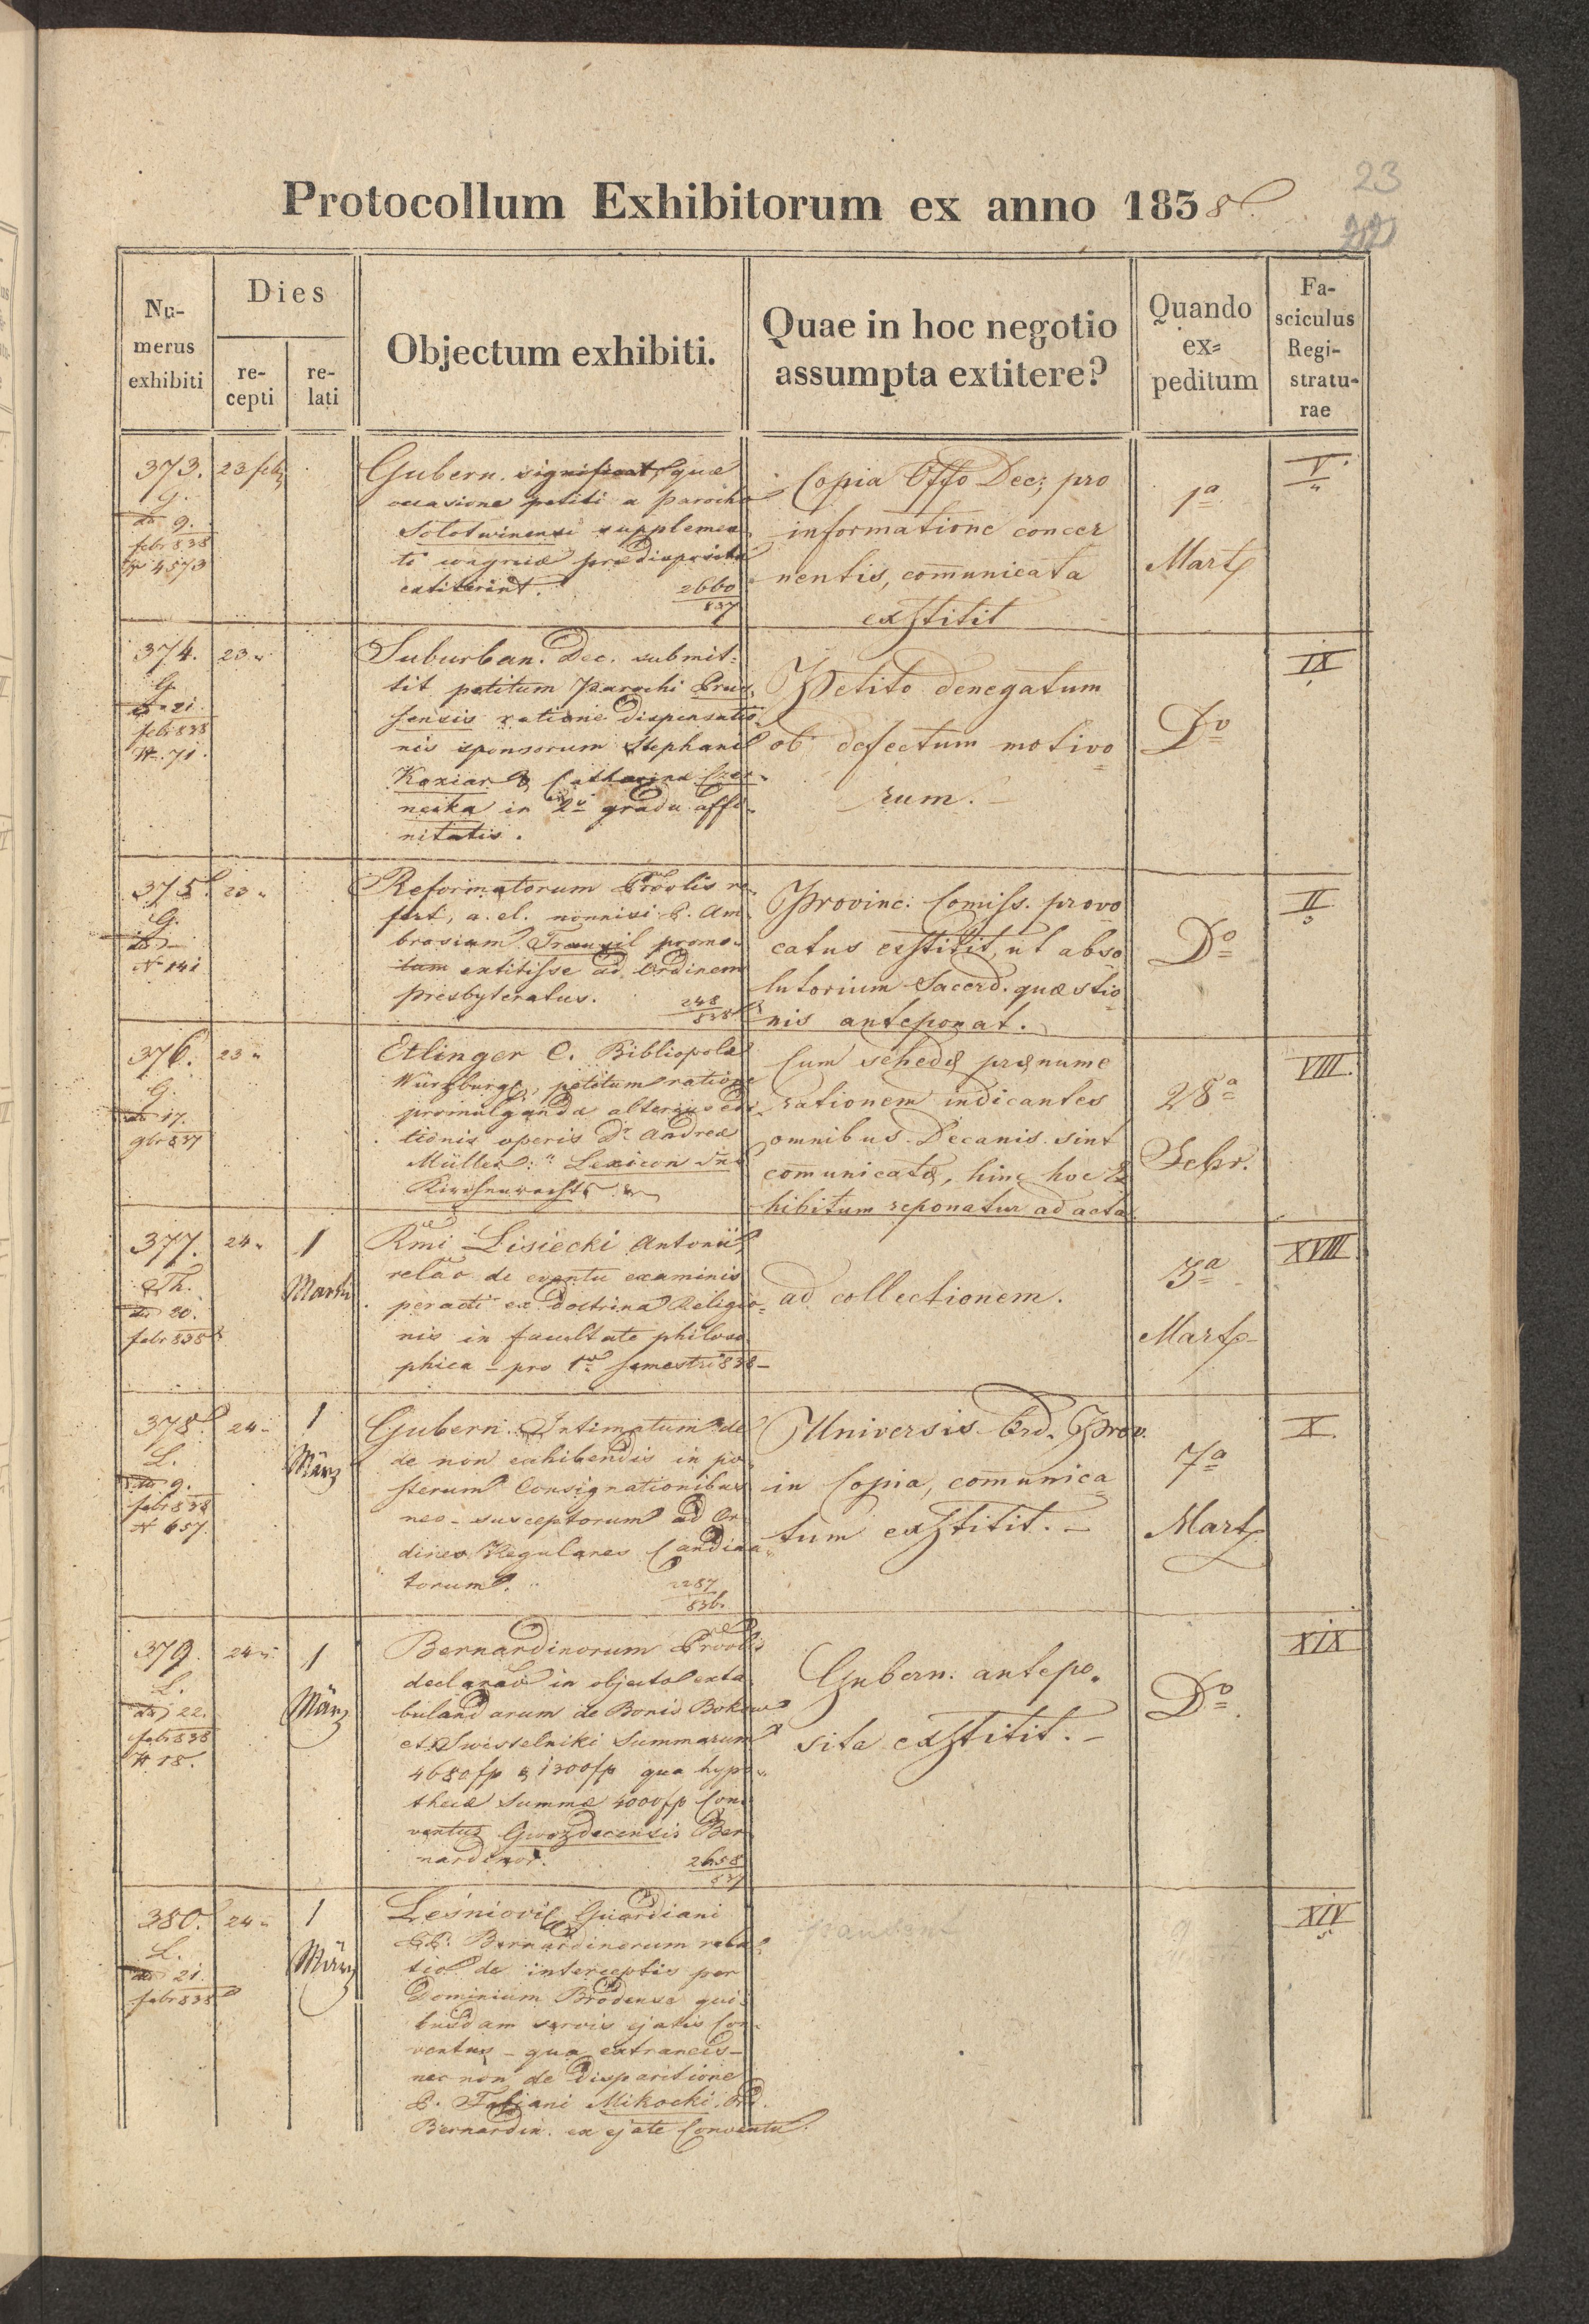 23
Protocollum Exhibitorum ex anno 1838.
Numerus exhibiti
Dies
recepti
relati
Objectum exhibiti.
Quae in hoc negotio assumpta extitere?
Quando expeditum
Fasciculus Registraturae
373.
G.
9.
febr 838
N 4573
23 feb
Gubern. significat, quae
occasione petiti a Parocho
Solotwinensi supplemen
ti congruae praedisposita
extiterint.
2660
837
Copia Offo Dec; pro
informatione concer
nentis, com̄unicata
exstitit
1a
Mart
V.
374.
G.
21.
febr 838
N. 71.
23 "
Suburban. Dec. submit:
tit petitum Parochi
sensis ratione dispensatio
nis sponsorum Stephani
Koziar & Catharina Czar
necka in 2o gradu affi
nitatis.
Petito denegatum
ob defectum motivo
rum. –
Do
IX
375.
G.
N 141
23 "
Reformatorum Provlis re
fert, a. el. nonnisi P. Am
brosium promo
tum extitisse ad Ordinem
presbyteratus.
248
838
Provinc. Comiss. provo
catus exstitit, ut abso
lutorium Sacerd. quaestio
nis anteponat.
Do
II
376.
G.
17.
9br 837
23 "
Etlinger C. Bibliopolae
Würzburg, petitum ratione
promulganda alterius edi
tionis operis Dr. Andreae
Müller: " Lexicon des
Kirchenrechts "
Cum schedae praenume
rationem indicantes
omnibus Decanis sint
com̄unicatae, hinc hoc Ex
hibitum reponatur ad acta.
28a
Febr.
VIII.
377.
Th.
20.
febr 838
24 "
1
Martii
Rmi Lisiecki Antonii
relao de eventu examinis
peracti ex doctrina Religio
nis in facultate philoso
phica – pro 1o semestri 838 –
ad collectionem.
3a
Mart
XVIII
378.
L.
9.
febr 838
N 657.
24 "
1
März
Gubern. Intimatum de
de non exhibendis in po
sterum Consignationibus
neo-susceptorum ad Or
dines Regulares Candida
torum.
2287
836.
Universis Ord. Prov.
in Copia, com̄unica
tum exstitit. –
7a
Mart
X.
379.
L.
22.
febr 838
N 18.
24 "
1
März
Bernardinorum Provlis
declarao in objecto exta
bulandarum de Bonis
et Swistelniki Summarum
4680 fp & 1300 fp qua hypo
thecae Summae 4000 fp Con
ventus Gwozdecensis Ber
nardinor.
2658
837
Gubern. antepo
sita exstitit. –
Do.
XIX
380.
L.
21.
febr 838
24 "
1
März
Leśniovic Guardiani
P.P. Bernardinorum rela
tio de interceptis per
Dominium Brodense qui
busdam servis ejatis Con
ventus – qua extraneis –
nec non de disparitione
P. Fabiani Mikocki Ord.
Bernardin. ex ejate Conventu.
XIV